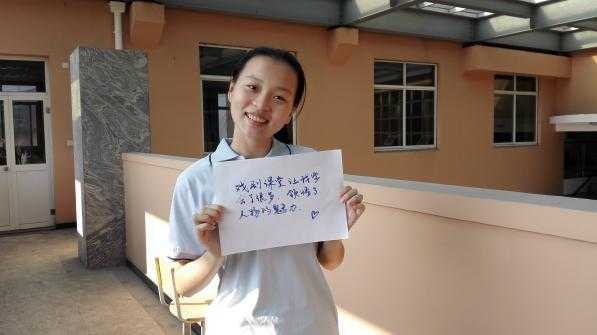 戏剧课堂让我学
会了很多 领悟了
人物的魅力.